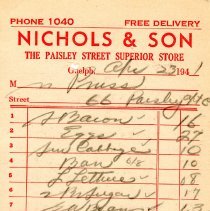 PHONE 1040 FREE DELIVERY
NICHOLS & SON
THE PAISLEY STREET SUPERIOR STORE
Guelph, Apr 23 1941
M
Street 66 Paisley
1 Bacon 16
2 Eggs 27
3 Cabbage 10
4 10
5 Lettuce 08
6 17
7 13